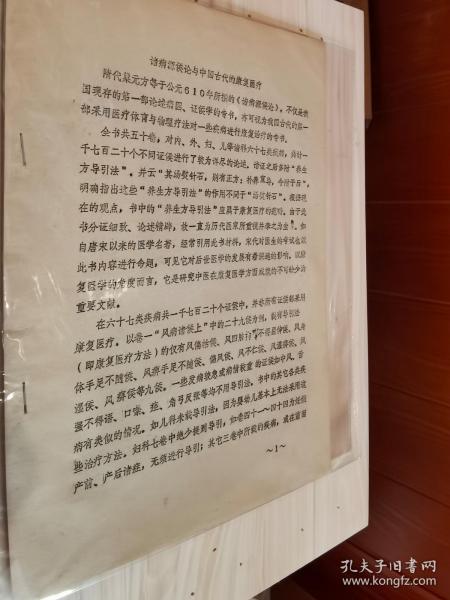 诸病源候论与中国古代的康复医疗
隋代巢元方等于公元610年所撰的《诸病源候论》，不仅是我
国现存的第一部论述病因、证候学的专书，亦可视为我国古代的第一
部采用医疗体育与物理疗法对一些疾病进行康复治疗的专书。
全书共五十卷，对内、外、妇、儿等诸科六十七类疾病，共计一
千七百二十个不同证候进行了较为详尽的论述。诸证之后多附“养生
方导引法”，并云“其汤熨针石，则有正方；补养宣导，今附于后”，
明确指出这些“养生方导引法”的作用不同于“汤熨针石”。根据现
在的观点，书中的“养生方导引法”应属于康复医疗的范畴。由于此
书分证细致、论述精辟，故一直为历代医家所重视并奉之为圭。如
自唐宋以来的医学名著，经常引用此书材料，宋代对医生的考试也以
此书内容进行命题，可见它对后世医学的发展有着深远的影响。以康
复医学的角度而言，它是研究中医在康复医学方面成就的不可缺少的
重要文献。
在六十七类疾病共一千七百二十个证候中，并非所有证候都采用
康复医疗。以卷一“风病诸候上”中的二十九候为例，载有导引法
（即康复医疗方法）的仅有风偏枯候、风四肢拘挛不得屈伸候、风身
体手足不随候、风痹手足不随候、偏风候、风不仁候、风湿痹候、风
湿候、风痹候等九候。一些发病较急或病情较重的证候如中风、舌
强不得语、口噤、痉、角弓反张等均不用导引法。书中的其它各类疾
病有类似的情况。如儿科未载导引法，因为婴幼儿基本上无法采用这
些治疗方法。妇科七卷中绝少提到导引，如卷四十一～四十四为妊娠
产前、产后诸症，无须进行导引；其它三卷中所载的疾病，或在前面
～1～
孔夫子旧书网
www.kongfz.com